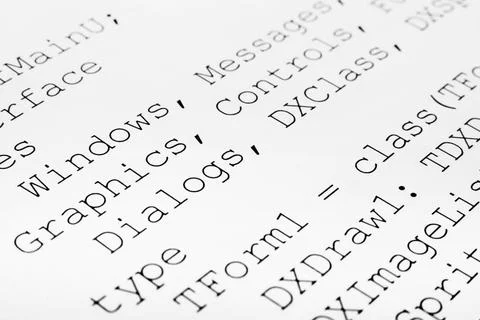 fMainU;
erface
es
Windows, Messages,
Graphics, Controls, Fo
Dialogs, DXClass, DXSp
type
TForm1 = class(TFO
DXDraw1: TDXD
DXImageLis
Sprit